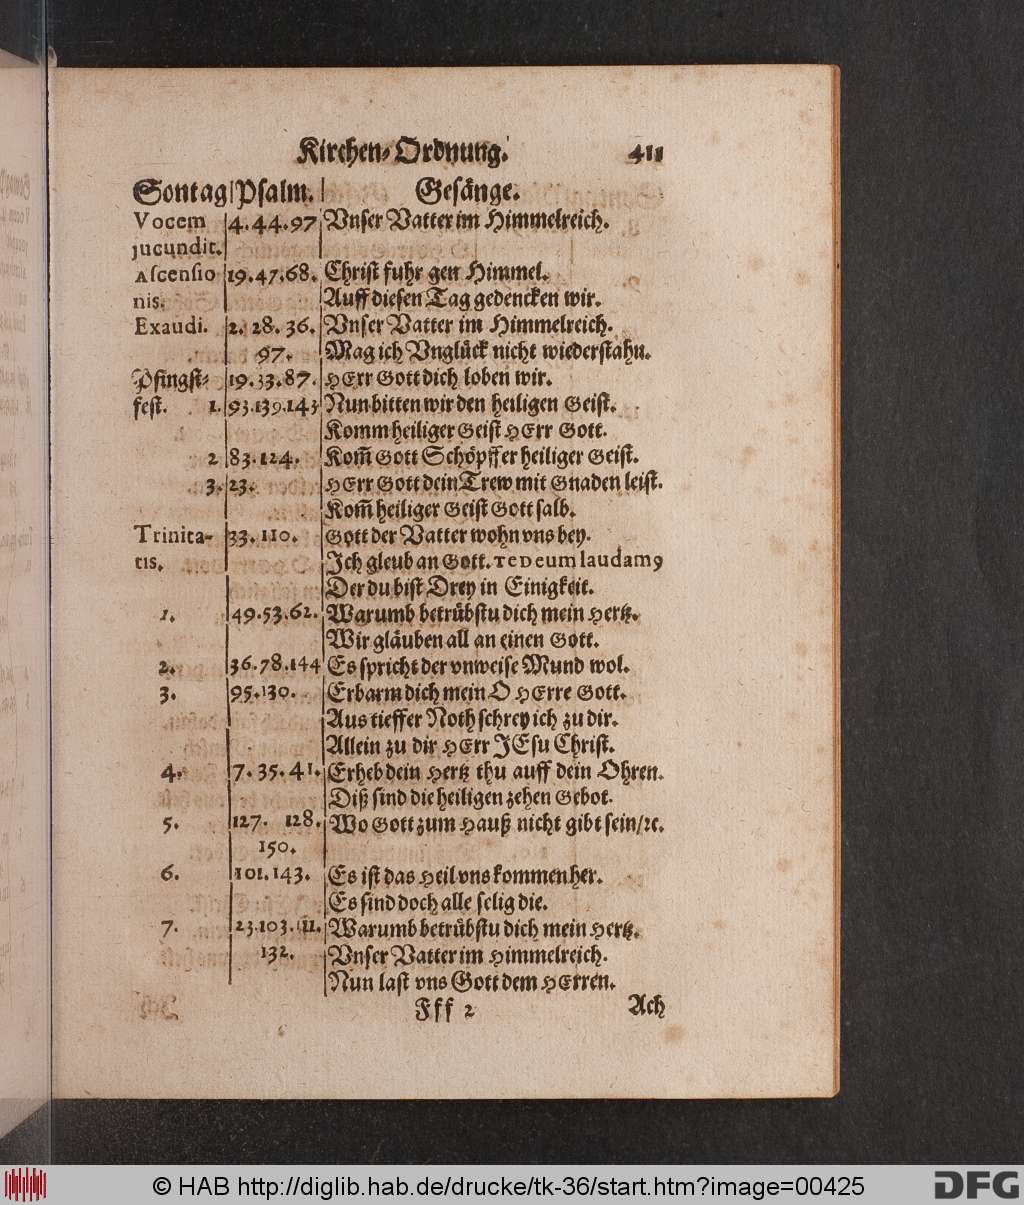 Kirchen-Ordnung. 411
Sontag|Psalm.| Gesänge.
Vocem |4.44.97|Vnser Vatter im Himmelreich.
jucundit.
Ascensio |19.47.68.|Christ fuhr gen Himmel.
nis. |Auff diesen Tag gedencken wir.
Exaudi. |2. 28. 36.|Vnser Vatter im Himmelreich.
97. |Mag ich Vnglück nicht wiederstahn.
Pfingst- |19.33.87.|HErr Gott dich loben wir.
fest. 1.|93.139.143|Nun bitten wir den heiligen Geist.
|Komm heiliger Geist HErr Gott.
2|83.124. |Kom̄ Gott Schöpffer heiliger Geist.
3.|23. |HErr Gott dein Trew mit Gnaden leist.
|Kom̄ heiliger Geist Gott salb.
Trinita- |33.110. |Gott der Vatter wohn vns bey.
tis. |Ich gleub an Gott. TEDeum laudamꝰ
|Der du bist Drey in Einigkeit.
1. |49.53.62.|Warumb betrübstu dich mein Hertz.
|Wir gläuben all an einen Gott.
2. |36.78.144|Es spricht der vnweise Mund wol.
3. |95.130. |Erbarm dich mein O HErre Gott.
|Aus tieffer Noth schrey ich zu dir.
|Allein zu dir HErr JEsu Christ.
4. |7.35.41.|Erheb dein Hertz thu auff dein Ohren.
|Diß sind die heiligen zehen Gebot.
5. |127. 128.|Wo Gott zum Hauß nicht gibt sein/ꝛc.
150.
6. |101.143. |Es ist das Heil vns kommen her.
|Es sind doch alle selig die.
7. |23.103.111.|Warumb betrübstu dich mein Hertz.
132. |Vnser Vatter im Himmelreich.
|Nun last vns Gott dem HErren.
Fff 2 Ach
© HAB http://diglib.hab.de/drucke/tk-36/start.htm?image=00425
DFG